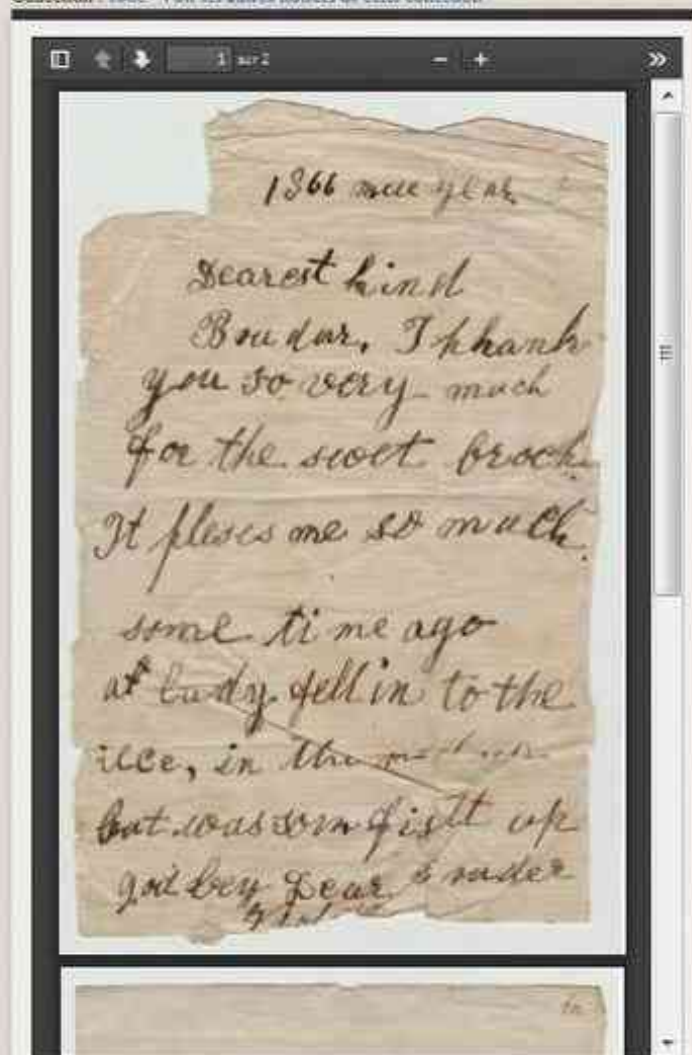 1 sur 2
1866 new year
Dearest kind
Bruder, I thank
you so very much
for the sweet broch
It pleses me so much.
some time ago
a lady fell in to the
ice, in the
but was som fisht up
god bey Dear Bruder